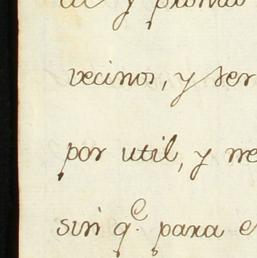 y
vecinos, y ser
por util, y ne
sin q.e para e